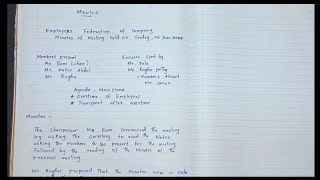 Minutes
Employees Federation of Company
Minutes of Meeting held on Friday, 02 Dec
Members present : Excuses sent by
Mr Ram (Chair) Mr.
Mr. Abdul Mr. Raghu
Mr. Raghu : Members Absent
Mr. Varun
Agenda :
* of Employees
* Transport after overtime
Minutes :-
The Chairperson Mr Ram commenced the meeting
by asking the Secretary to read the Notice
asking the Members to be present for the meeting
Followed by the reading of the Minutes of the
previous meeting.
Mr Raghu proposed that the Minutes